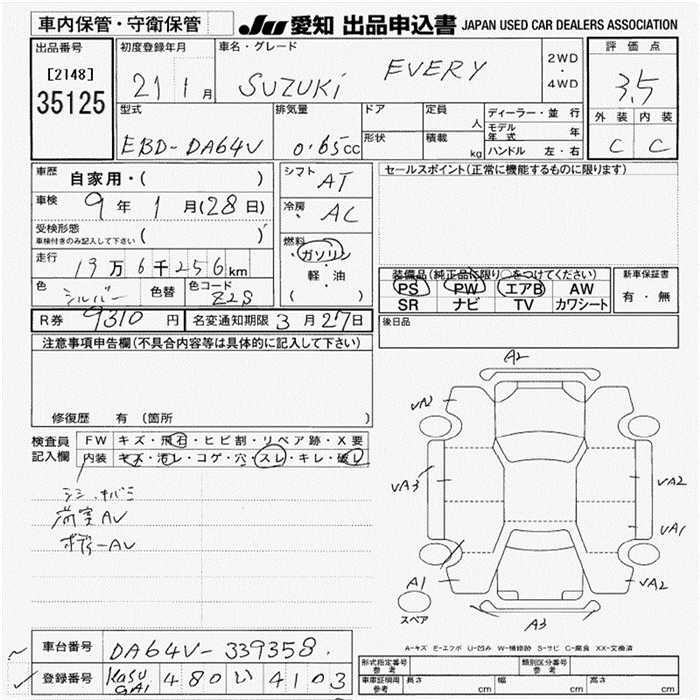 車内保管・守衛保管
JU 愛知 出品申込書 JAPAN USED CAR DEALERS ASSOCIATION
出品番号
[2148]
35125
初度登録年月
21 1月
車名・グレード
SUZUKI EVERY
2WD
・
4WD
評価点
3.5
外装 内装
C C
型式
EBD-DA64V
排気量
0.65cc
ドア
形状
定員 人
積載 kg
ディーラー・並行
モデル年式 年
ハンドル 左・右
車歴
自家用・( )
車検 9年 1月(28日)
受検形態
車検付きのみ記入して下さい ( )
走行
19万6千256km
色 シルバー 色替 色コード Z2S
シフト AT
冷房 AC
燃料
ガソリン
軽・油
( )
セールスポイント(正常に機能するものに限ります)
装備品(純正品に限り○をつけてください)
PS PW エアB AW
SR ナビ TV カワシート
新車保証書
有・無
R券 9310円 名変通知期限 3月27日
後日品
注意事項申告欄(不具合内容等は具体的に記入して下さい)
修復歴 有 (箇所 )
検査員
記入欄
FW キズ・飛石・ヒビ割・リペア跡・X要
内装 キズ・汚レ・コゲ・穴・スレ・キレ・破レ
荷室AV
ボディーAV
A2
VA2
VA3
VA2
VA1
A1
VA2
A3
スペア
A-キズ E-エクボ U-凹み W-補修跡 S-サビ C-腐食 XX-交換済
車台番号 DA64V-339358
登録番号 Kasugai 480 い 4103
形式指定番号
参考
類別区分番号
参考
車庫証明用
参考
長さ cm 幅 cm 高さ cm